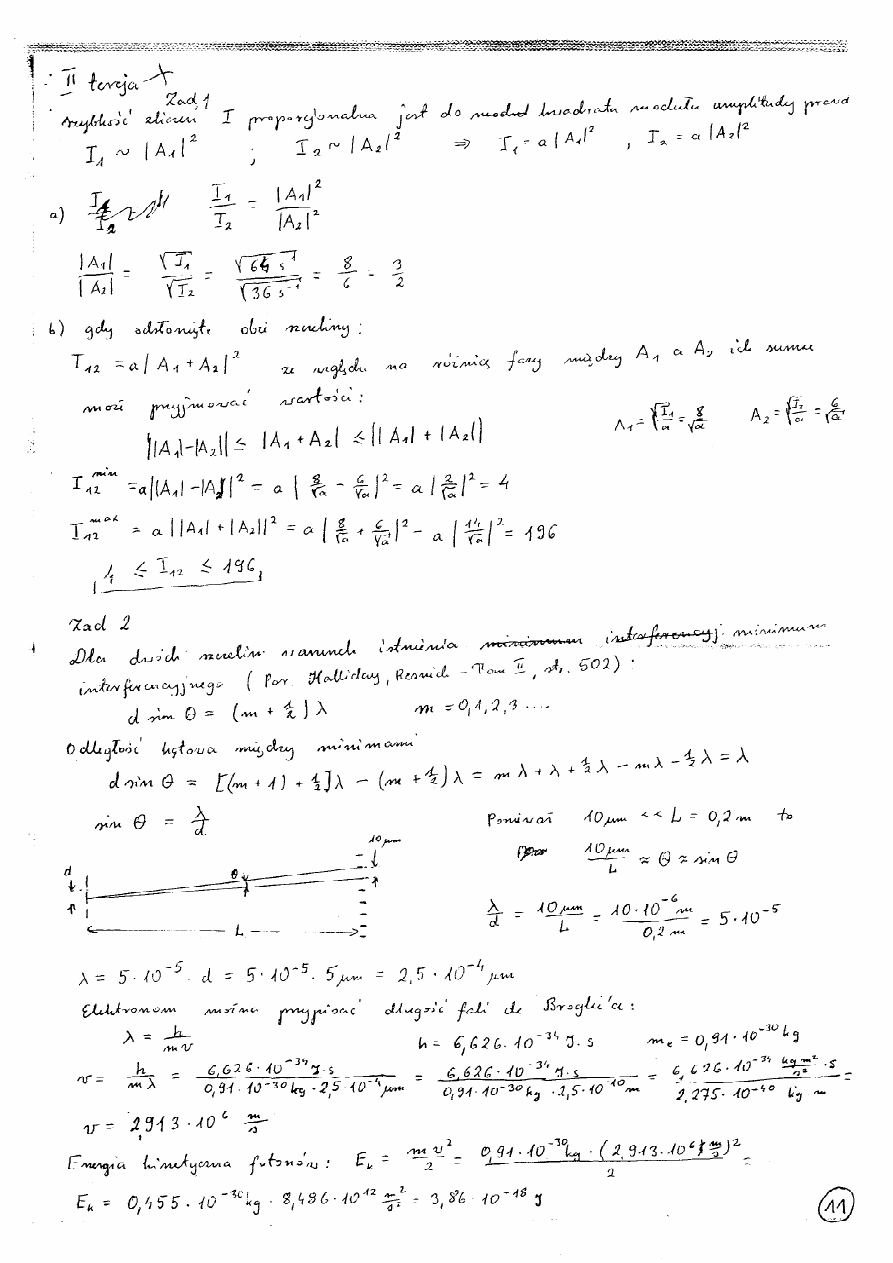 II tercja
Zad. 1
szybkość zliczeń I proporcjonalna jest do kwadratu modułu amplitudy prawd
I₁ ~ |A₁|² ; I₂ ~ |A₂|² ⇒ I₁ = a|A₁|² , I₂ = a|A₂|²
a) I₁/I₂ = |A₁|²/|A₂|²
|A₁|/|A₂| = √I₁/√I₂ = √(64 s⁻¹)/√(36 s⁻¹) = 8/6 = 3/2
b) gdy odsłonięte obie szczeliny :
I₁₂ = a|A₁ + A₂|² ze względu na różnicę fazy między A₁ a A₂ ich suma
może przyjmować wartości :
||A₁|-|A₂|| ≤ |A₁ + A₂| ≤ ||A₁| + |A₂||
A₁ = √(I₁/a) = 8/√a A₂ = √(I₂/a) = 6/√a
I₁₂ᵐⁱⁿ = a||A₁| - |A₂||² = a|8/√a - 6/√a|² = a|2/√a|² = 4
I₁₂ᵐᵃˣ = a||A₁| + |A₂||² = a|8/√a + 6/√a|² = a|14/√a|² = 196
4 ≤ I₁₂ ≤ 196
Zad 2
Dla dwóch szczelin warunek istnienia minimum
interferencyjnego (Por. Halliday, Resnick - Tom II, str. 502) :
d sin θ = (m + 1/2) λ m = 0,1,2,3 ....
Odległość kątowa między minimami
d sin θ = [(m + 1) + 1/2]λ - (m + 1/2)λ = mλ + λ + 1/2 λ - mλ - 1/2 λ = λ
sin θ = λ/d
Ponieważ 10 μm << L = 0,2 m to
10 μm/L ≈ θ ≈ sin θ
10 μm
d
θ
L
λ/d = 10 μm/L = 10·10⁻⁶ m/0,2 m = 5·10⁻⁵
λ = 5·10⁻⁵ · d = 5·10⁻⁵ · 5 μm = 2,5 · 10⁻⁴ μm
Elektronom można przypisać długość fali de Broglie'a :
λ = h/mv h = 6,626 · 10⁻³⁴ J·s mₑ = 0,91·10⁻³⁰ kg
v = h/mλ = 6,626·10⁻³⁴ J·s/0,91·10⁻³⁰ kg · 2,5·10⁻⁴ μm = 6,626·10⁻³⁴ J·s/0,91·10⁻³⁰ kg · 2,5·10⁻¹⁰ m = 6,626·10⁻³⁴ kg m²/s² ·s/2,275·10⁻⁴⁰ kg m =
v = 2,913 · 10⁶ m/s
Energia kinetyczna fotonów : Eₖ = mv²/2 = 0,91·10⁻³⁰ kg · (2,913·10⁶ m/s)²/2 =
Eₖ = 0,455 · 10⁻³⁰ kg · 8,486·10¹² m²/s² = 3,86 · 10⁻¹⁸ J
11